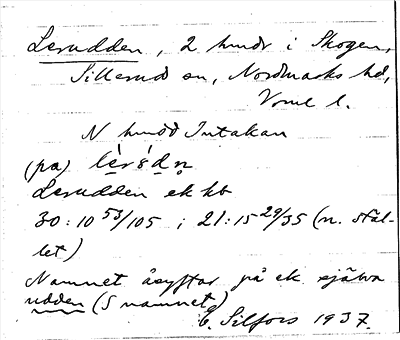 Lerudden, 2 hundr i Skogen,
Sillerud sn, Nordmarks hd,
Vrml l.
N hundd Intakan
(pa) lè̱rúḏn̥
Lerudden ek kb
30:10 53/105 i 21:15 29/35 (n. stäl-
let)
Namnet åsyftar på ek. själva
udden (S namnet)
E. Silfors 1937.